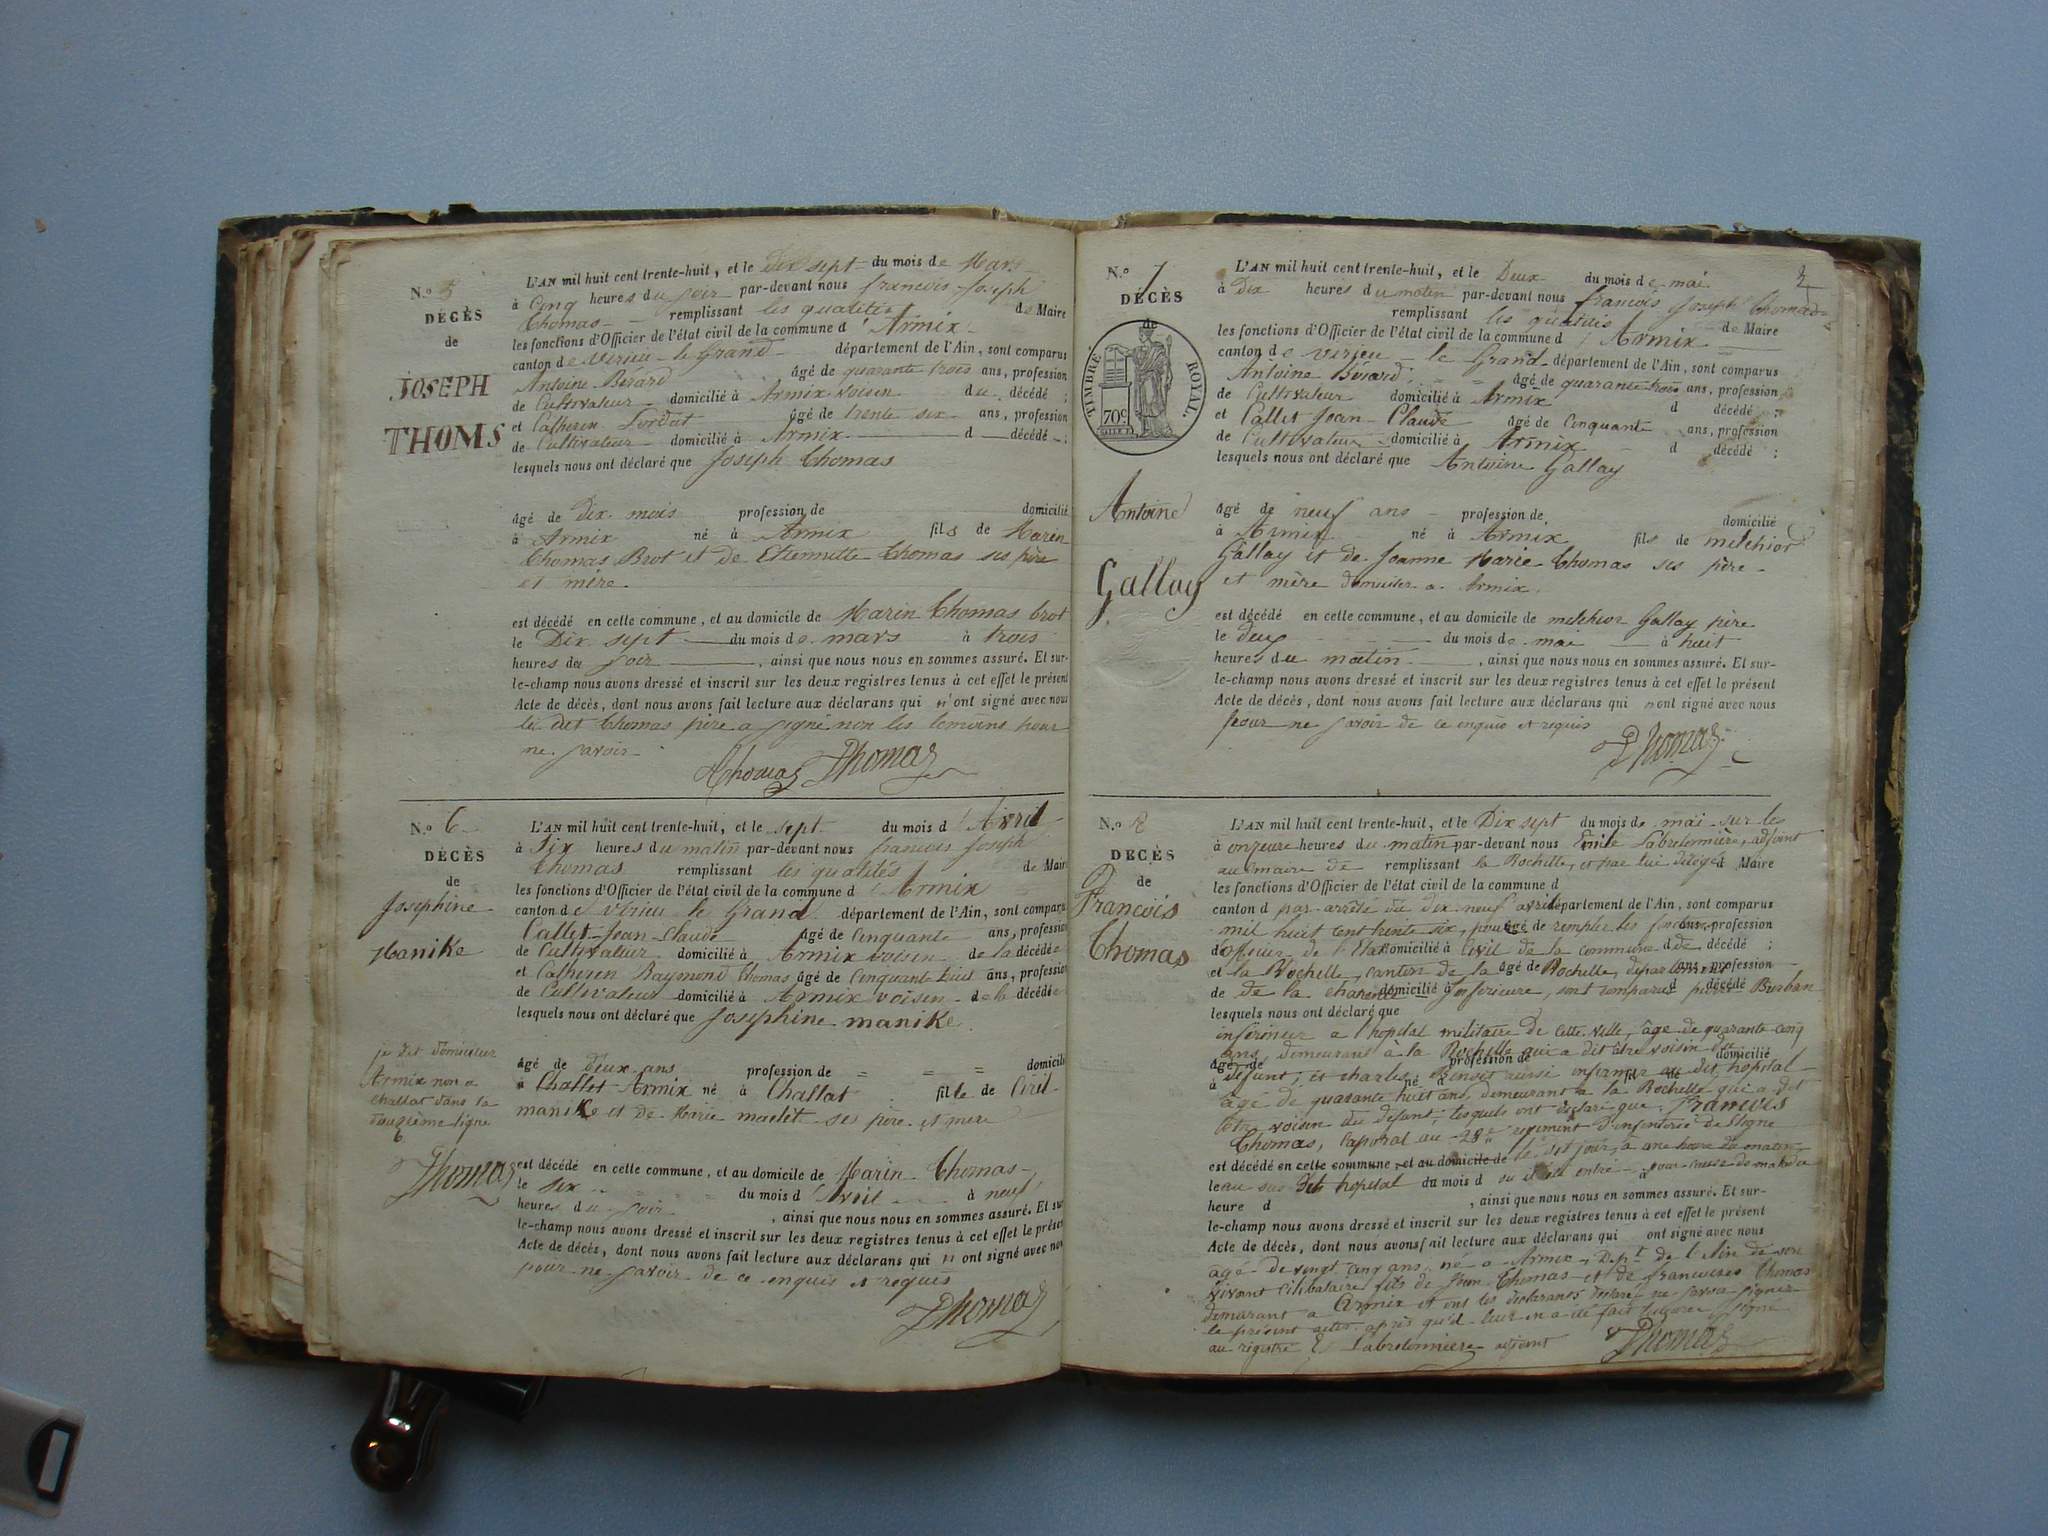 N.º 5
DÉCÈS
de
JOSEPH
THOMS
L'AN mil huit cent trente-huit, et le Dix sept du mois de Mars
à Cinq heures du soir par-devant nous francois Joseph
Thomas remplissant les qualités de Maire
les fonctions d'Officier de l'état civil de la commune d'Armix
canton de virieu le Grand département de l'Ain, sont comparus
Antoine Bérard âgé de quarante trois ans, profession
de Cultivateur domicilié à Armix voisin du décédé ;
et Catherin âgé de trente six ans, profession
de Cultivateur domicilié à Armix d décédé ;
lesquels nous ont déclaré que Joseph Thomas
âgé de Dix mois profession de domicilié
à Armix né à Armix fils de Marin
Thomas Brot et de Etiennette Thomas ses père
et mère
est décédé en cette commune, et au domicile de Marin Thomas brot
le Dix sept du mois de mars à trois
heures du soir, ainsi que nous nous en sommes assuré. Et sur-
le-champ nous avons dressé et inscrit sur les deux registres tenus à cet effet le présent
Acte de décès, dont nous avons fait lecture aux déclarans qui n'ont signé avec nous
le dit Thomas père a signé non les temoins pour
ne savoir
Thomas Thomas
N.º 6
DÉCÈS
de
Josephine
Manike
L'AN mil huit cent trente-huit, et le sept du mois d'Avril
à Six heures du matin par-devant nous francois Joseph
Thomas remplissant les qualités de Maire
les fonctions d'Officier de l'état civil de la commune d'Armix
canton de virieu le Grand département de l'Ain, sont comparus
Callet Jean Claude âgé de Cinquante ans, profession
de Cultivateur domicilié à Armix voisin de la décédée
et Catherin Raymond Thomas âgé de Cinquante huit ans, profession
de Cultivateur domicilié à Armix voisin de la décédée
lesquels nous ont déclaré que Josephine manike
je dit domicilier
Armix non a
challat dans la
douzième ligne
Thomas
âgé de deux ans profession de = = = domicilié
à Challet Armix né à Challat fille de Ciril
manike et de Marie ses père et mere
est décédé en cette commune, et au domicile de Marin Thomas
le six du mois d'Avril à neuf
heures du soir, ainsi que nous nous en sommes assuré. Et sur-
le-champ nous avons dressé et inscrit sur les deux registres tenus à cet effet le présent
Acte de décès, dont nous avons fait lecture aux déclarans qui n ont signé avec nous
pour ne savoir de ce enquis et requis
Thomas
2
N.º 7
DÉCÈS
de
TIMBRE ROYAL.
70c
Antoine
Gallay
L'AN mil huit cent trente-huit, et le Deux du mois de mai
à Dix heures du matin par-devant nous francois Joseph Thomas
remplissant les qualités de Maire
les fonctions d'Officier de l'état civil de la commune d'Armix
canton de virieu le Grand département de l'Ain, sont comparus
Antoine Berard âgé de quarante trois ans, profession
de Cultivateur domicilié à Armix d décédé ;
et Callet Jean Claude âgé de Cinquante ans, profession
de Cultivateur domicilié à Armix d décédé ;
lesquels nous ont déclaré que Antoine Gallay
âgé de neuf ans profession de domicilié
à Armix né à Armix fils de melchior
Gallay et de Jeanne Marie Thomas ses père
et mère a Armix
est décédé en cette commune, et au domicile de melchior Gallay père
le deux du mois de mai à huit
heures du matin, ainsi que nous nous en sommes assuré. Et sur-
le-champ nous avons dressé et inscrit sur les deux registres tenus à cet effet le présent
Acte de décès, dont nous avons fait lecture aux déclarans qui n ont signé avec nous
pour ne savoir de ce enquis et requis
Thomas
N.º 8
DÉCÈS
de
Francois
Thomas
L'AN mil huit cent trente-huit, et le Dix sept du mois de mai sur les
à onze heures du matin par-devant nous Emile Labretonnière, adjoint
au maire de remplissant la Rochelle, et par lui délégué Maire
les fonctions d'Officier de l'état civil de la commune d
canton d par arrêté du dix neuf avril département de l'Ain, sont comparus
mil huit cent trente six, pour âgé de remplir les fonctions ans, profession
de officier de l'Etat domicilié à Civil de la commune d de décédé ;
et la Rochelle, canton de la âgé de Rochelle, département ans, profession
de de la charente domicilié à inferieure, sont comparus d décédé Burban
lesquels nous ont déclaré que
infirmier a l'hopital militaire de cette ville, âgé de quarante cinq
ans, demeurant à la Rochelle qui a dit être voisin du
âgé de profession de domicilié
à défunt, et charles Benoit aussi infirmier au dit hopital
âgé de quarante huit ans, demeurant a la Rochelle qui a dit
être voisin du défunt, lesquels ont déclaré que Francois
Thomas, Caporal au 28e regiment d'infanterie de ligne
est décédé en cette commune, et au domicile de le dit jour, à une heure du matin
le au sus dit hopital du mois d ou il est entré à pour cause de maladie
heure d, ainsi que nous nous en sommes assuré. Et sur-
le-champ nous avons dressé et inscrit sur les deux registres tenus à cet effet le présent
Acte de décès, dont nous avons fait lecture aux déclarans qui ont signé avec nous
âgé de vingt cinq ans, né a Armix, Dept de l'Ain de son
vivant célibataire fils de Jean Thomas et de francoise Thomas
demeurant a Armix et ont les déclarants déclaré ne savoir signer
le présent acte après qu'il leur en a été fait lecture Signé
au registre E Labretonnière adjoint Thomas